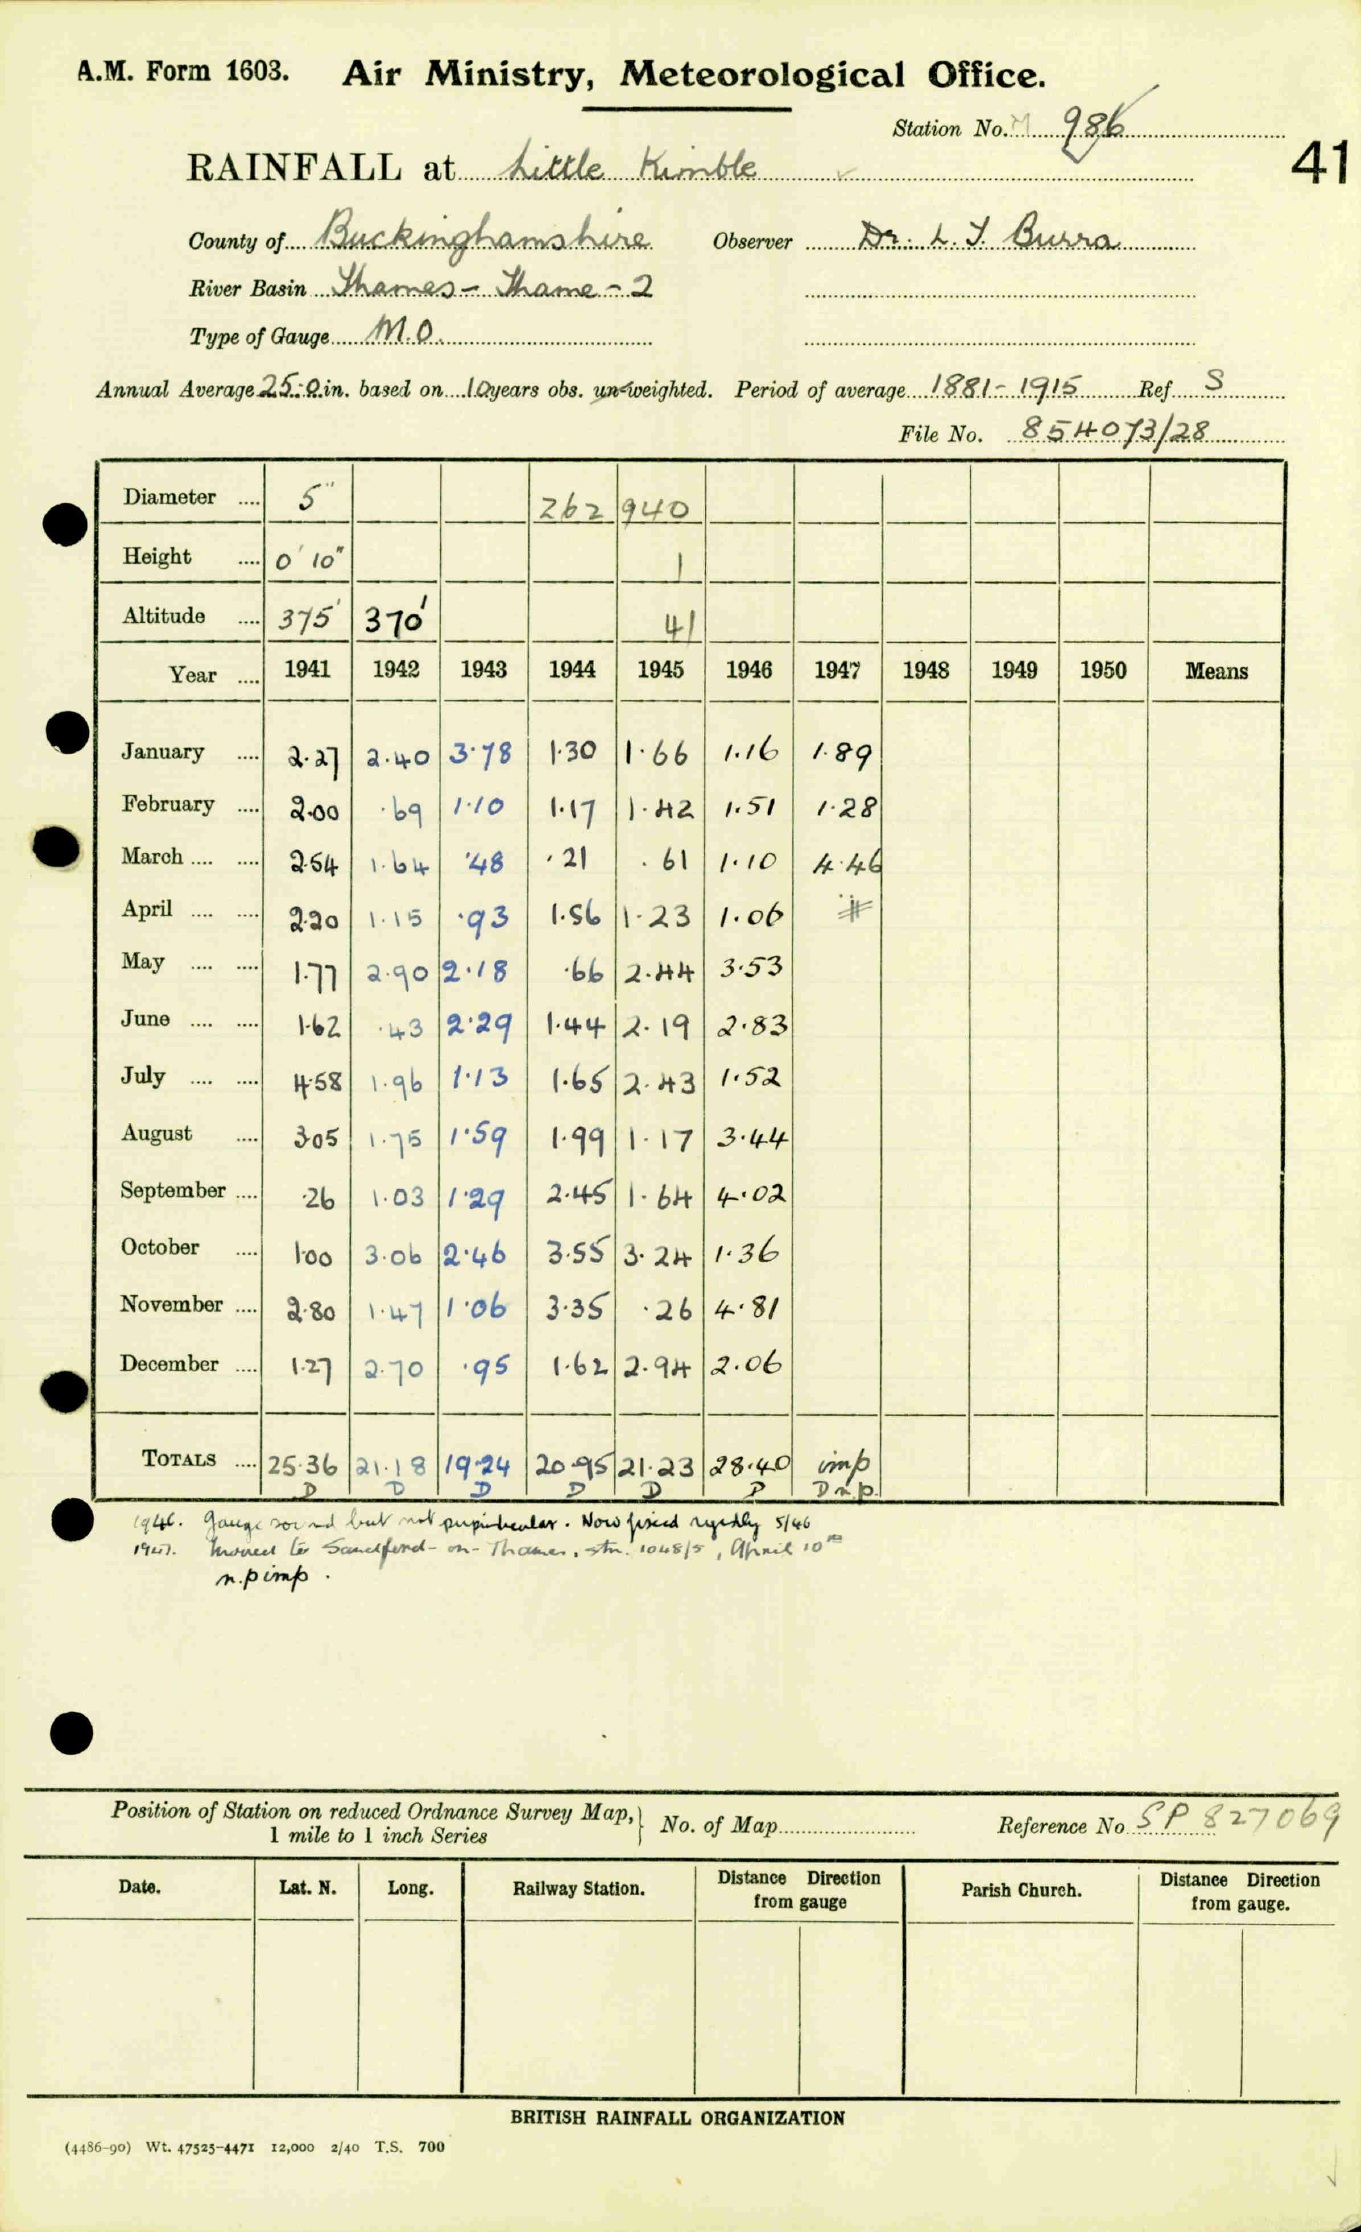 A.M. Form 1603. Air Ministry, Meteorological Office.
Station No. M 986
41
RAINFALL at Little Kimble
County of Buckinghamshire Observer Dr. L. T. Burra
River Basin Thames - Thame - 2
Type of Gauge M.O.
Annual Average 25.0 in. based on 10 years obs. un-weighted. Period of average 1881-1915 Ref. S
File No. 854073/28
Diameter .... 5" 262 940
Height .... 0' 10" 1
Altitude .... 375' 370' 41
Year .... 1941 1942 1943 1944 1945 1946 1947 1948 1949 1950 Means
January .... 2.27 2.40 3.78 1.30 1.66 1.16 1.89
February .... 2.00 .69 1.10 1.17 1.42 1.51 1.28
March .... .... 2.54 1.64 .48 .21 .61 1.10 4.46
April .... .... 2.20 1.15 .93 1.56 1.23 1.06
May .... .... 1.77 2.90 2.18 .66 2.44 3.53
June .... .... 1.62 .43 2.29 1.44 2.19 2.83
July .... .... 4.58 1.96 1.13 1.65 2.43 1.52
August .... 3.05 1.75 1.59 1.99 1.17 3.44
September .... .26 1.03 1.29 2.45 1.64 4.02
October .... 1.00 3.06 2.46 3.55 3.24 1.36
November .... 2.80 1.47 1.06 3.35 .26 4.81
December .... 1.27 2.70 .95 1.62 2.94 2.06
TOTALS .... 25.36 21.18 19.24 20.95 21.23 28.40 imp
D D D D D D D n.p.
1946. Gauge sound but not perpendicular. Now fixed rigidly 5/46
1947. Moved to Sandford-on-Thames, stn. 1048/5, April 10th
n.p imp.
Position of Station on reduced Ordnance Survey Map, } No. of Map Reference No SP 827069
1 mile to 1 inch Series
Date. Lat. N. Long. Railway Station. Distance Direction Parish Church. Distance Direction
from gauge from gauge.
BRITISH RAINFALL ORGANIZATION
(4486-90) Wt. 47525-4471 12,000 2/40 T.S. 700